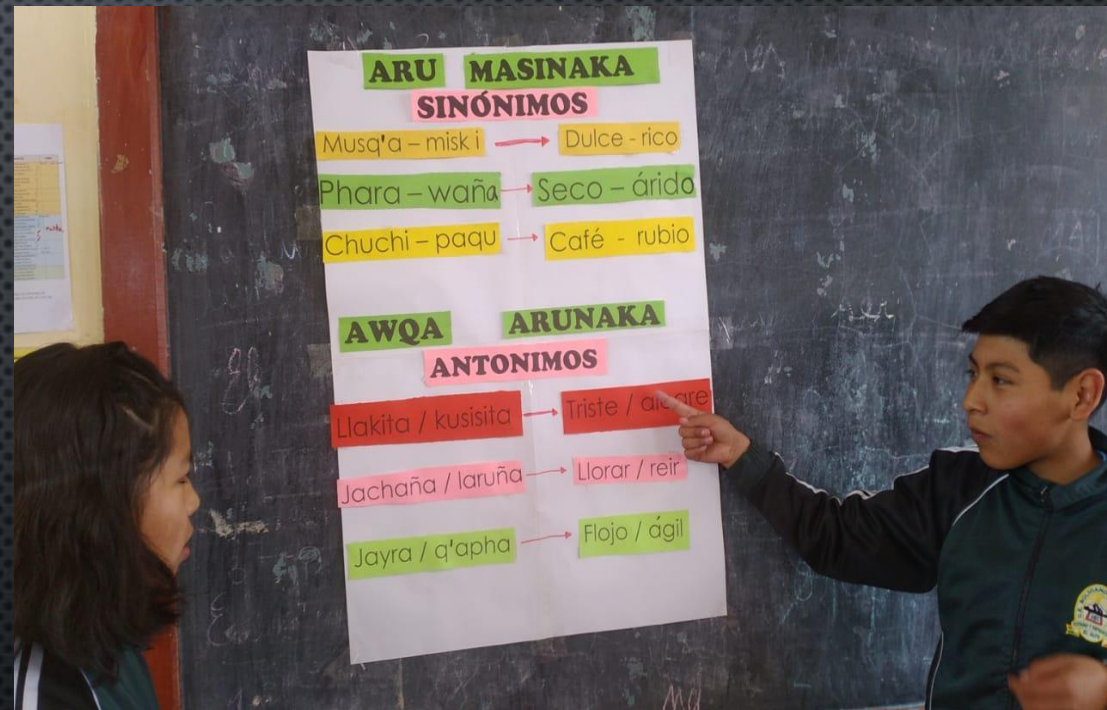 ARU MASINAKA
SINÓNIMOS
Musq'a – misk i → Dulce - rico
Phara – waña → Seco – árido
Chuchi – paqu → Café - rubio
AWQA ARUNAKA
ANTONIMOS
Llakita / kusisita → Triste / alegre
Jachaña / laruña → Llorar / reir
Jayra / q'apha → Flojo / ágil